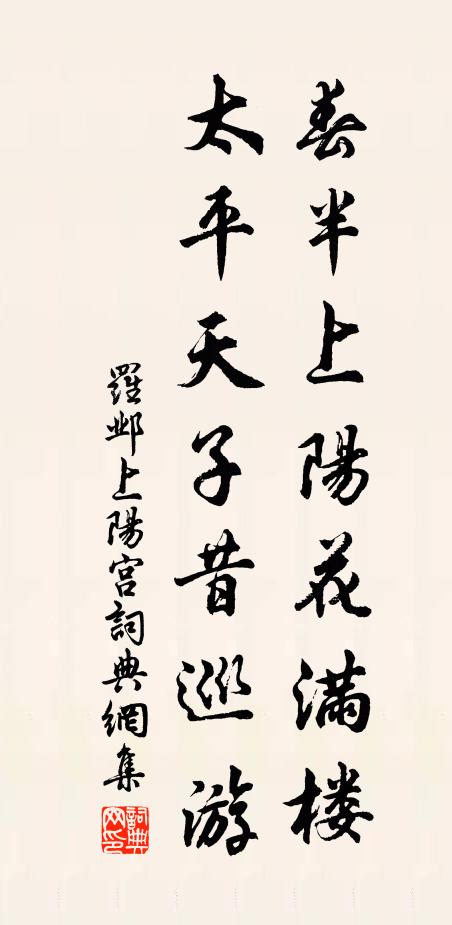 春半上陽花满楼
太平天子昔巡游
羅鄴上陽宮詞典網集
詞典網印